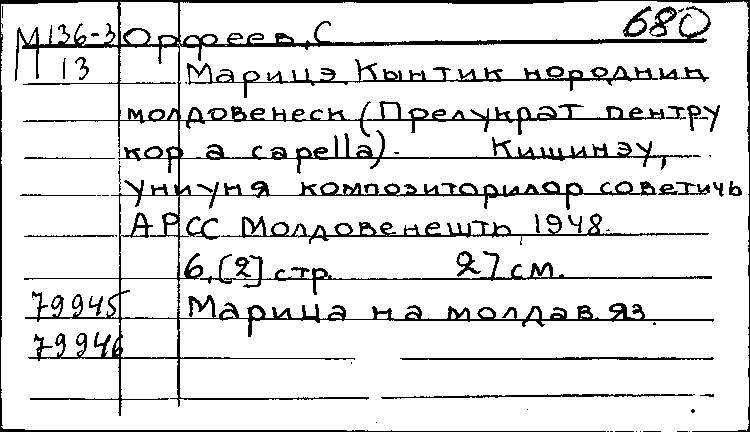 680
М 136-3 Орфеев, С
13 Марицэ. Кынтик нородник
молдовенеск (Прелукрат пентру
кор a capella). Кишинэу,
униуня композиторилор советичь
АРСС Молдовенешть, 1948.
6, [2] стр. 27 см.
79945 Марица на молдав. яз.
79946